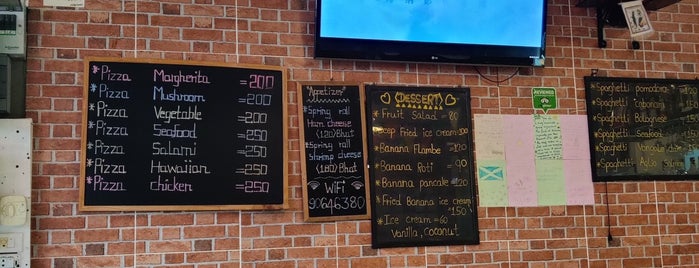 *Pizza Margherita =200
*Pizza Mushroom =200
*Pizza Vegetable =200
*Pizza Seafood =250
*Pizza Salami =250
*Pizza Hawaiian =250
*Pizza chicken =250
"Appetizer"
*Spring roll
Ham cheese
(120)Bhat
*Spring roll
Shrimp cheese
(180)Bhat
WiFi
90646380
DESSERT
*Fruit Salad =80
Fried ice cream
*Banana Flambe =120
*Banana Roti
*Banana pancake =120
*Fried Banana ice cream
*150
*Ice cream =60
Vanilla, Coconut
LG
REVIEWED
*Spaghetti pomodoro
*Spaghetti Carbonara
*Spaghetti Bolognese
*Spaghetti Seafood
*Spaghetti Vongole
*Spaghetti Aglio